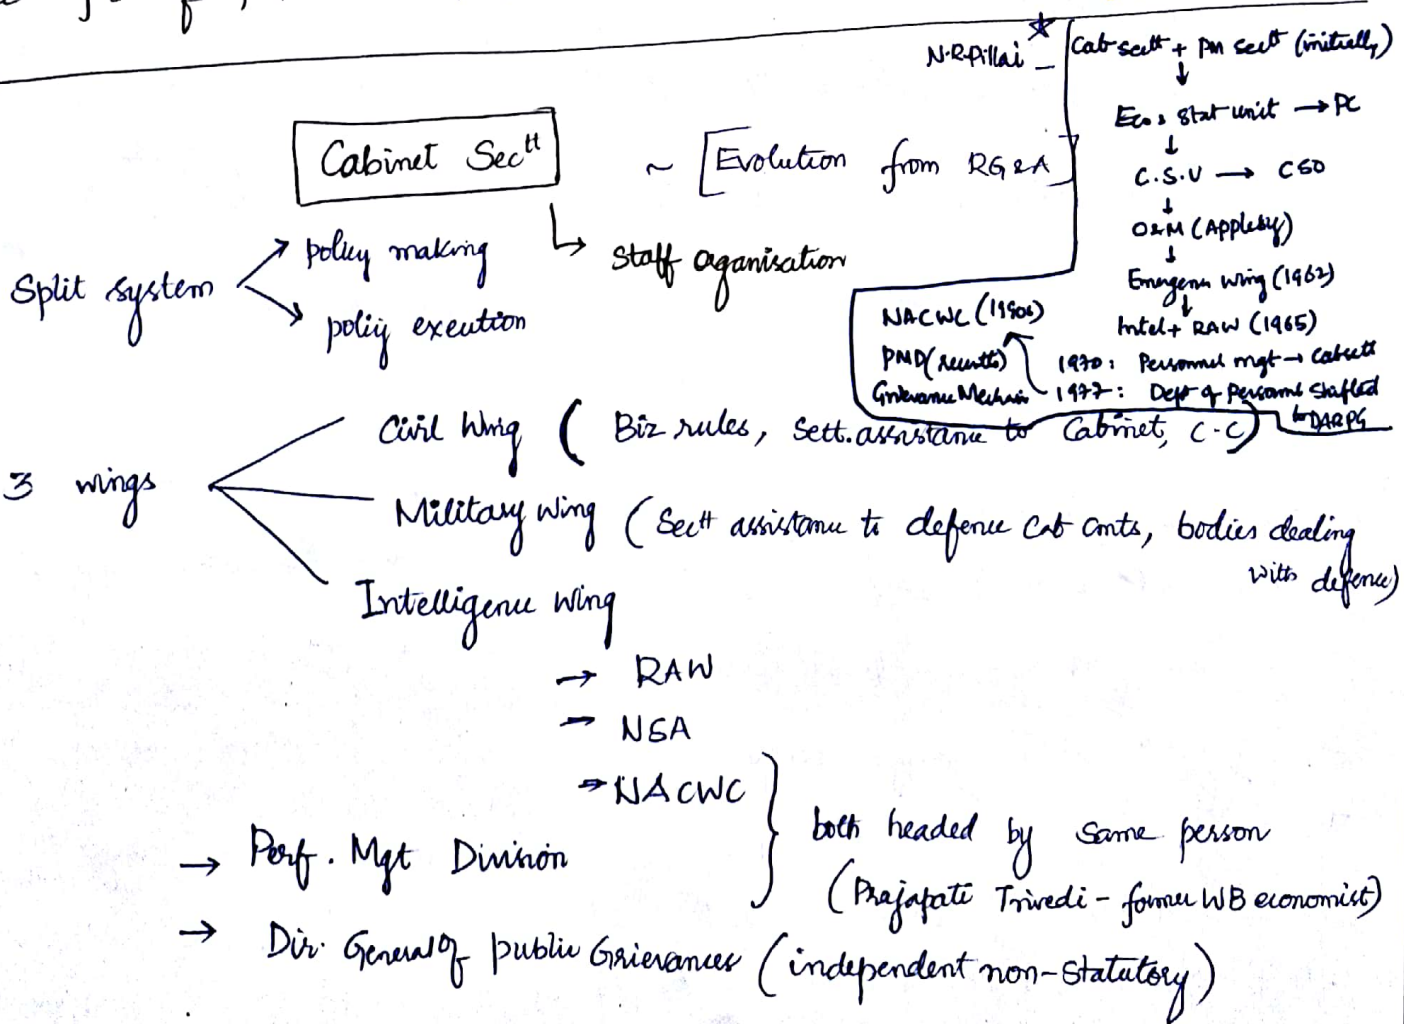 N.R.Pillai
Cab sectt + PM sectt (initially)
Eco & Stat unit → PC
C.S.U → CSO
O&M (Appleby)
Emergen wing (1962)
Intel + RAW (1965)
1970: Personnel mgt → Cabsectt
1977: Dept of Personnel shifted
to DARPG
NACWC (1980s)
PMD (recently)
Grievance Mechnism
Cabinet Sectt
~ [Evolution from RG&A]
→ staff oganisation
Split system
policy making
policy exeution
3 wings
Civil Wing (Biz rules, Sett. assistance to Cabinet, C-C)
Military wing (Sectt assistance to defence Cab cmts, bodies dealing
with defence)
Intelligence wing
→ RAW
→ NSA
→ NACWC
→ Perf. Mgt Division
both headed by same person
(Prajapati Trivedi - former WB economist)
→ Dir. General of public Grievances (independent non-statutory)